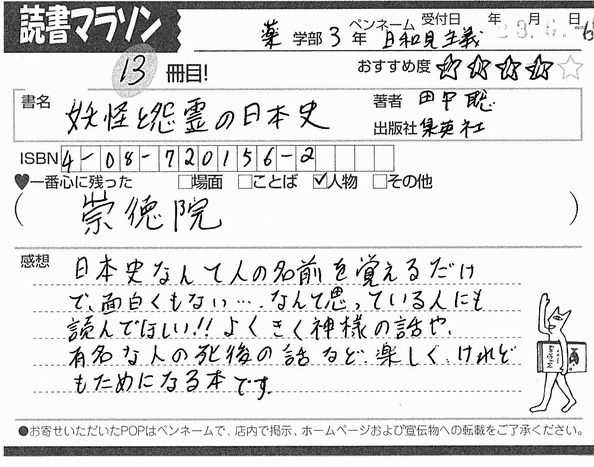 読書マラソン
薬 学部 3 年 ペンネーム 日和見主義 受付日 年 月 日
13 冊目!
おすすめ度 ★★★★☆
書名 妖怪と怨霊の日本史
著者 田中聡
出版社 集英社
ISBN 4-08-720156-2
♥一番心に残った □場面 □ことば ☑人物 □その他
(崇徳院)
感想
日本史なんて人の名前を覚えるだけ
で、面白くもない…。なんて思っている人にも
読んでほしい!! よくきく神様の話や、
有名な人の死後の話など、楽しく、けれど
もためになる本です。
●お寄せいただいたPOPはペンネームで、店内で掲示、ホームページおよび宣伝物への転載をご了承ください。